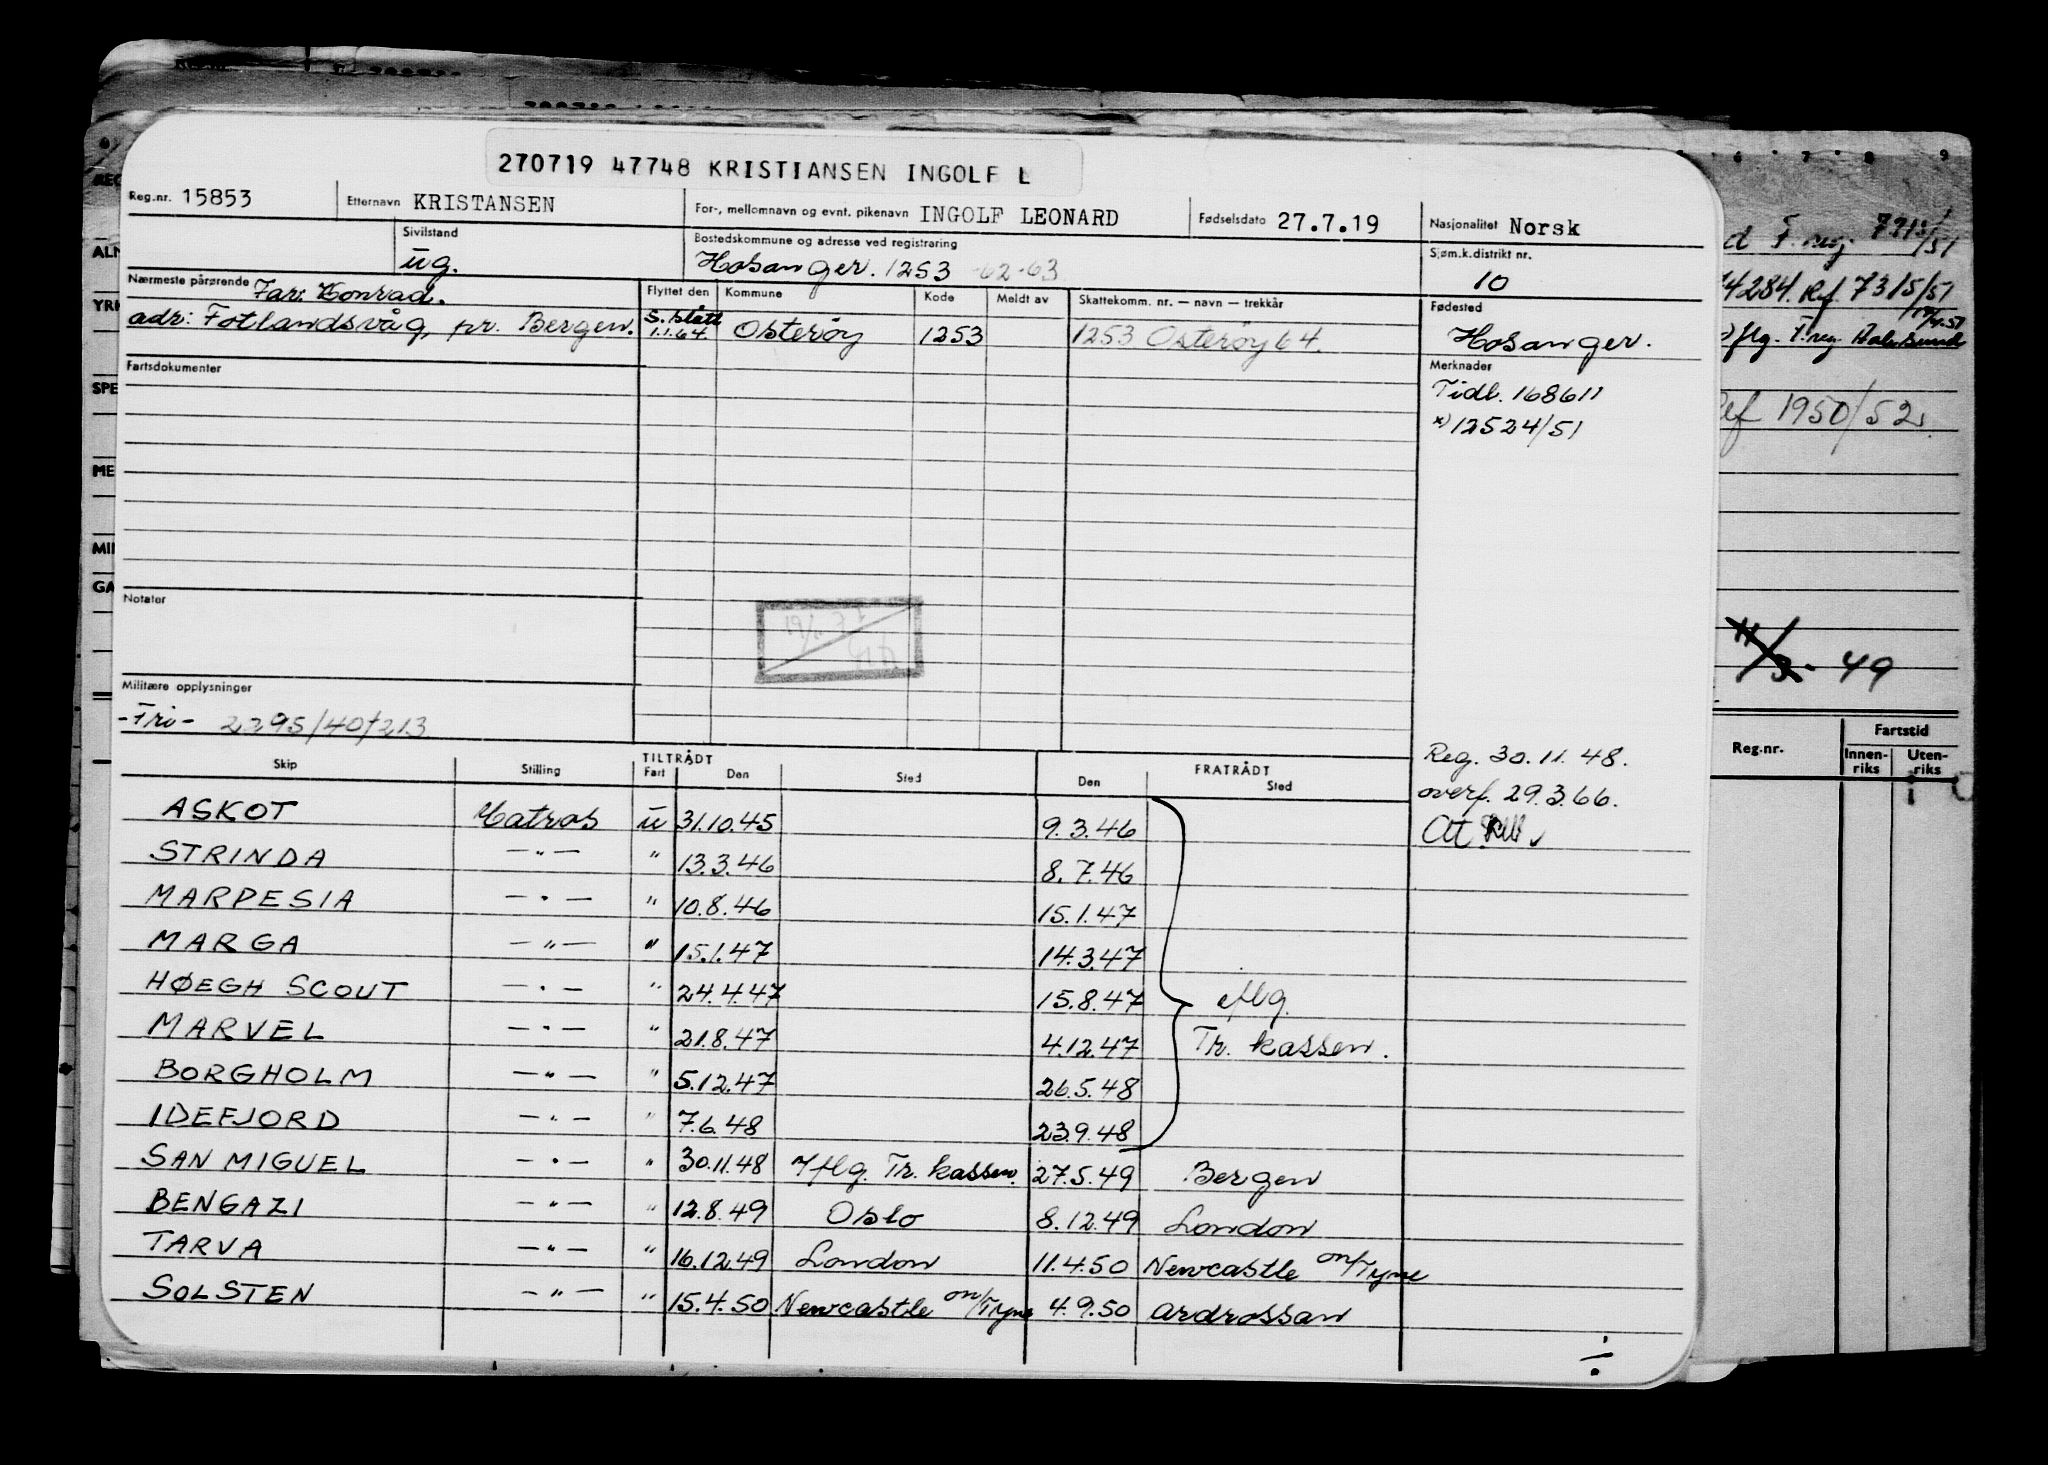 270719 47748 KRISTIANSEN INGOLF L
Reg.nr. 15853 Etternavn KRISTANSEN For-, mellomnavn og evnt. pikenavn INGOLF LEONARD Fødselsdato 27.7.19 Nasjonalitet Norsk
Sivilstand ug. Bostedskommune og adresse ved registrering Hosanger. 1253 -62-63 Sjøm.k.distrikt nr. 10
Nærmeste pårørende Far: Konrad. Flyttet den Kommune Kode Meldt av Skattekomm. nr. — navn — trekkår Fødested
adr: Fotlandsvåg, pr. Bergen. S.slått 1.1.64. Osterøy 1253 1253 Osterøy 64. Hosanger.
Fartsdokumenter Merknader
Tidl. 168611
x) 12524/51
Notater
Militære opplysninger
-Fri- 2395/40/213
Reg. 30.11.48.
overf. 29.3.66.
Att.
Skip Stilling TILTRÅDT Fart Den Sted FRATRÅDT Den Sted
ASKOT Matros u 31.10.45 9.3.46
STRINDA —"— " 13.3.46 8.7.46
MARPESIA —"— " 10.8.46 15.1.47
MARGA —"— " 15.1.47 14.3.47
HØEGH SCOUT —"— " 24.4.47 15.8.47 iflg.
MARVEL —"— " 21.8.47 4.12.47 Tr. kassen.
BORGHOLM —"— " 5.12.47 26.5.48
IDEFJORD —"— " 7.6.48 23.9.48
SAN MIGUEL —"— " 30.11.48 Iflg. Tr. kassen. 27.5.49 Bergen
BENGAZI —"— " 12.8.49 Oslo 8.12.49 London
TARVA —"— " 16.12.49 London 11.4.50 Newcastle on/Tyne
SOLSTEN —"— " 15.4.50 Newcastle on/Tyne 4.9.50 Ardrossan
÷
6 7 8 9
d F.reg. 
74284. Ref. 7315/51
flg. F.reg.
Ref 1950/52.
11/3- 49
Reg.nr. Fartstid
Innenriks Utenriks